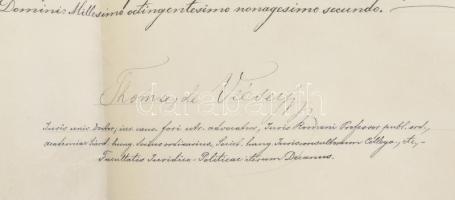 Domini: Millesimo octingentesimo nonagesimo secundo.
Thomas de Vécsey
darabanth
Juris univ. doctor, juris Romani Professor publ. ord.,
academiae hung. sodalis ordinarius, Societ. hung. Jurisconsultorum Collega, etc, -
Facultatis Juridico-Politicae iterum Decanus.